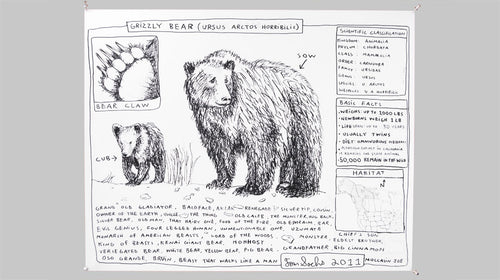 GRIZZLY BEAR (URSUS ARCTOS HORRIBILIS)
BEAR CLAW
CUB
SOW
SCIENTIFIC CLASSIFICATION
KINGDOM: ANIMALIA
PHYLUM: CHORDATA
CLASS: MAMMALIA
ORDER: CARNIVORA
FAMILY: URSIDAE
GENUS: URSUS
SPECIES: U. ARCTOS
BASIC FACTS
WEIGHS UP TO 1000 LBS
NEWBORNS WEIGH 1 LB
30 YEARS
USUALLY TWINS
DIET: OMNIVOROUS
REMAIN IN THE WILD
HABITAT
N
GRAND OLD GLADIATOR, BALDFACE, RENEGADE, SILVERTIP, COUSIN,
OWNER OF THE EARTH, THE THING, OLD CALFE, THE MONSTER, BIG
SILVER BEAR, OLD MAN, THAT HAIRY ONE, FOOD OF THE FIRE, OLD EPHRAIM, BEAR,
EVIL GENIUS, FOUR LEGGED HUMAN, UNMENTIONABLE ONE, UZUMATA
MONARCH OF AMERICAN BEASTS, LORD OF THE WOODS, MONSTER,
KING OF BEASTS, KENAI GIANT BEAR, GRANDFATHER, BIG COUSIN
CHIEF'S SON,
ELDEST BROTHER,
VARIEGATED BEAR, WHITE BEAR, YELLOW BEAR, PIG BEAR,
OSO GRANDE, BRUIN, BEAST THAT WALKS LIKE A MAN
2011